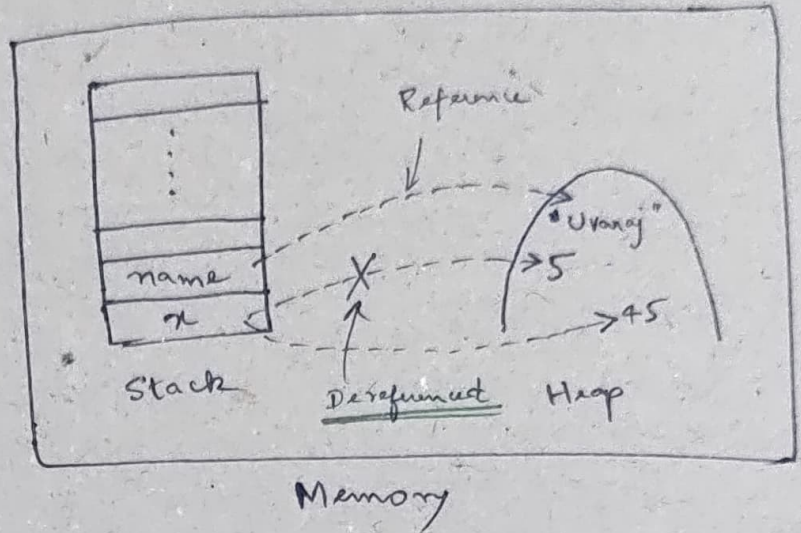 Reference
"Uvaraj"
name
5
x
45
Stack
Dereferenced
Heap
Memory